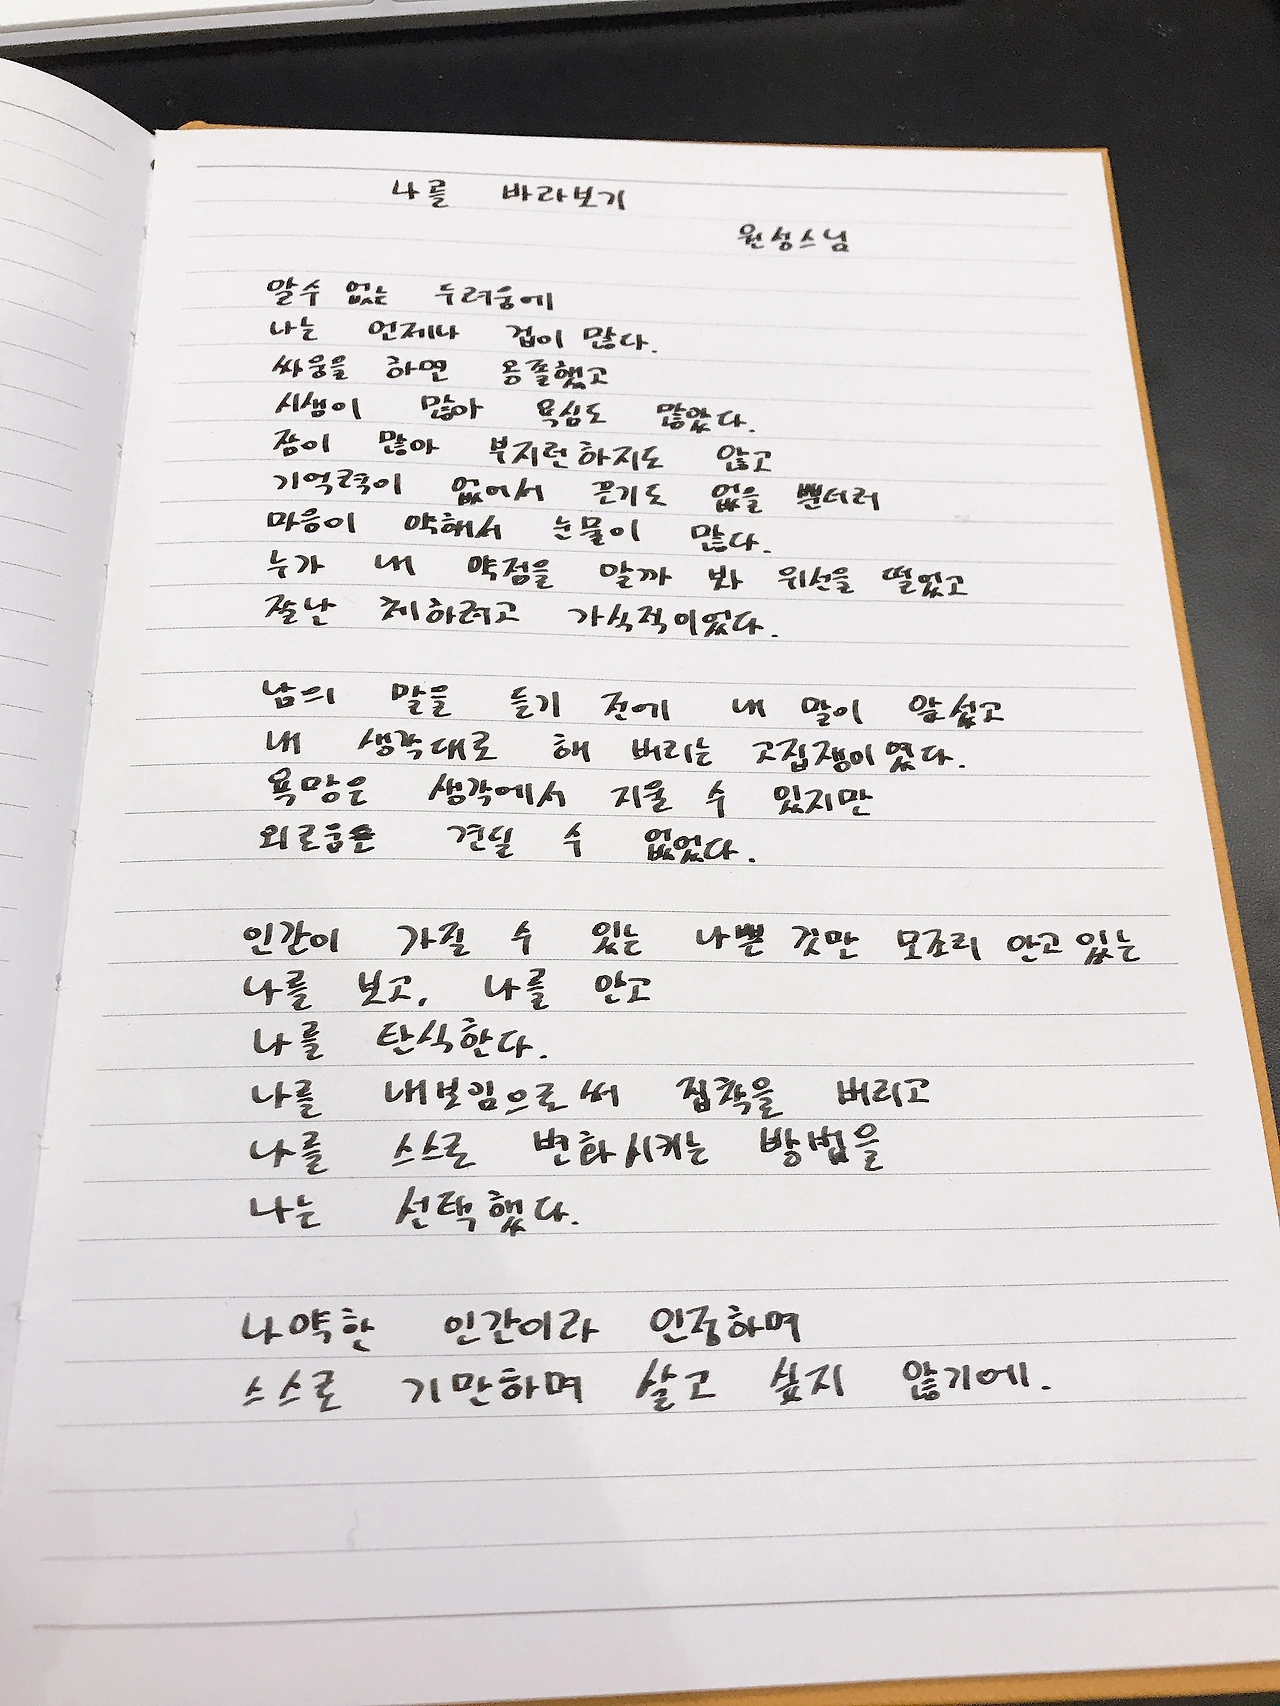 나를 바라보기
원성스님
알수 없는 두려움에
나는 언제나 겁이 많다.
싸움을 하면 옹졸했고
시샘이 많아 욕심도 많았다.
잠이 많아 부지런하지도 않고
기억력이 없어서 끈기도 없을 뿐더러
마음이 약해서 눈물이 많다.
누가 내 약점을 말할까 봐 위선을 떨었고
잘난 체하려고 가식적이었다.
남의 말을 듣기 전에 내 말이 앞섰고
내 생각대로 해 버리는 고집쟁이였다.
욕망은 생각에서 지울 수 있지만
외로움은 견딜 수 없었다.
인간이 가질 수 있는 나쁜 것만 모조리 안고 있는
나를 보고, 나를 안고
나를 탄식한다.
나를 내보임으로써 집착을 버리고
나를 스스로 변화시키는 방법을
나는 선택했다.
나약한 인간이라 인정하며
스스로 기만하며 살고 싶지 않기에.